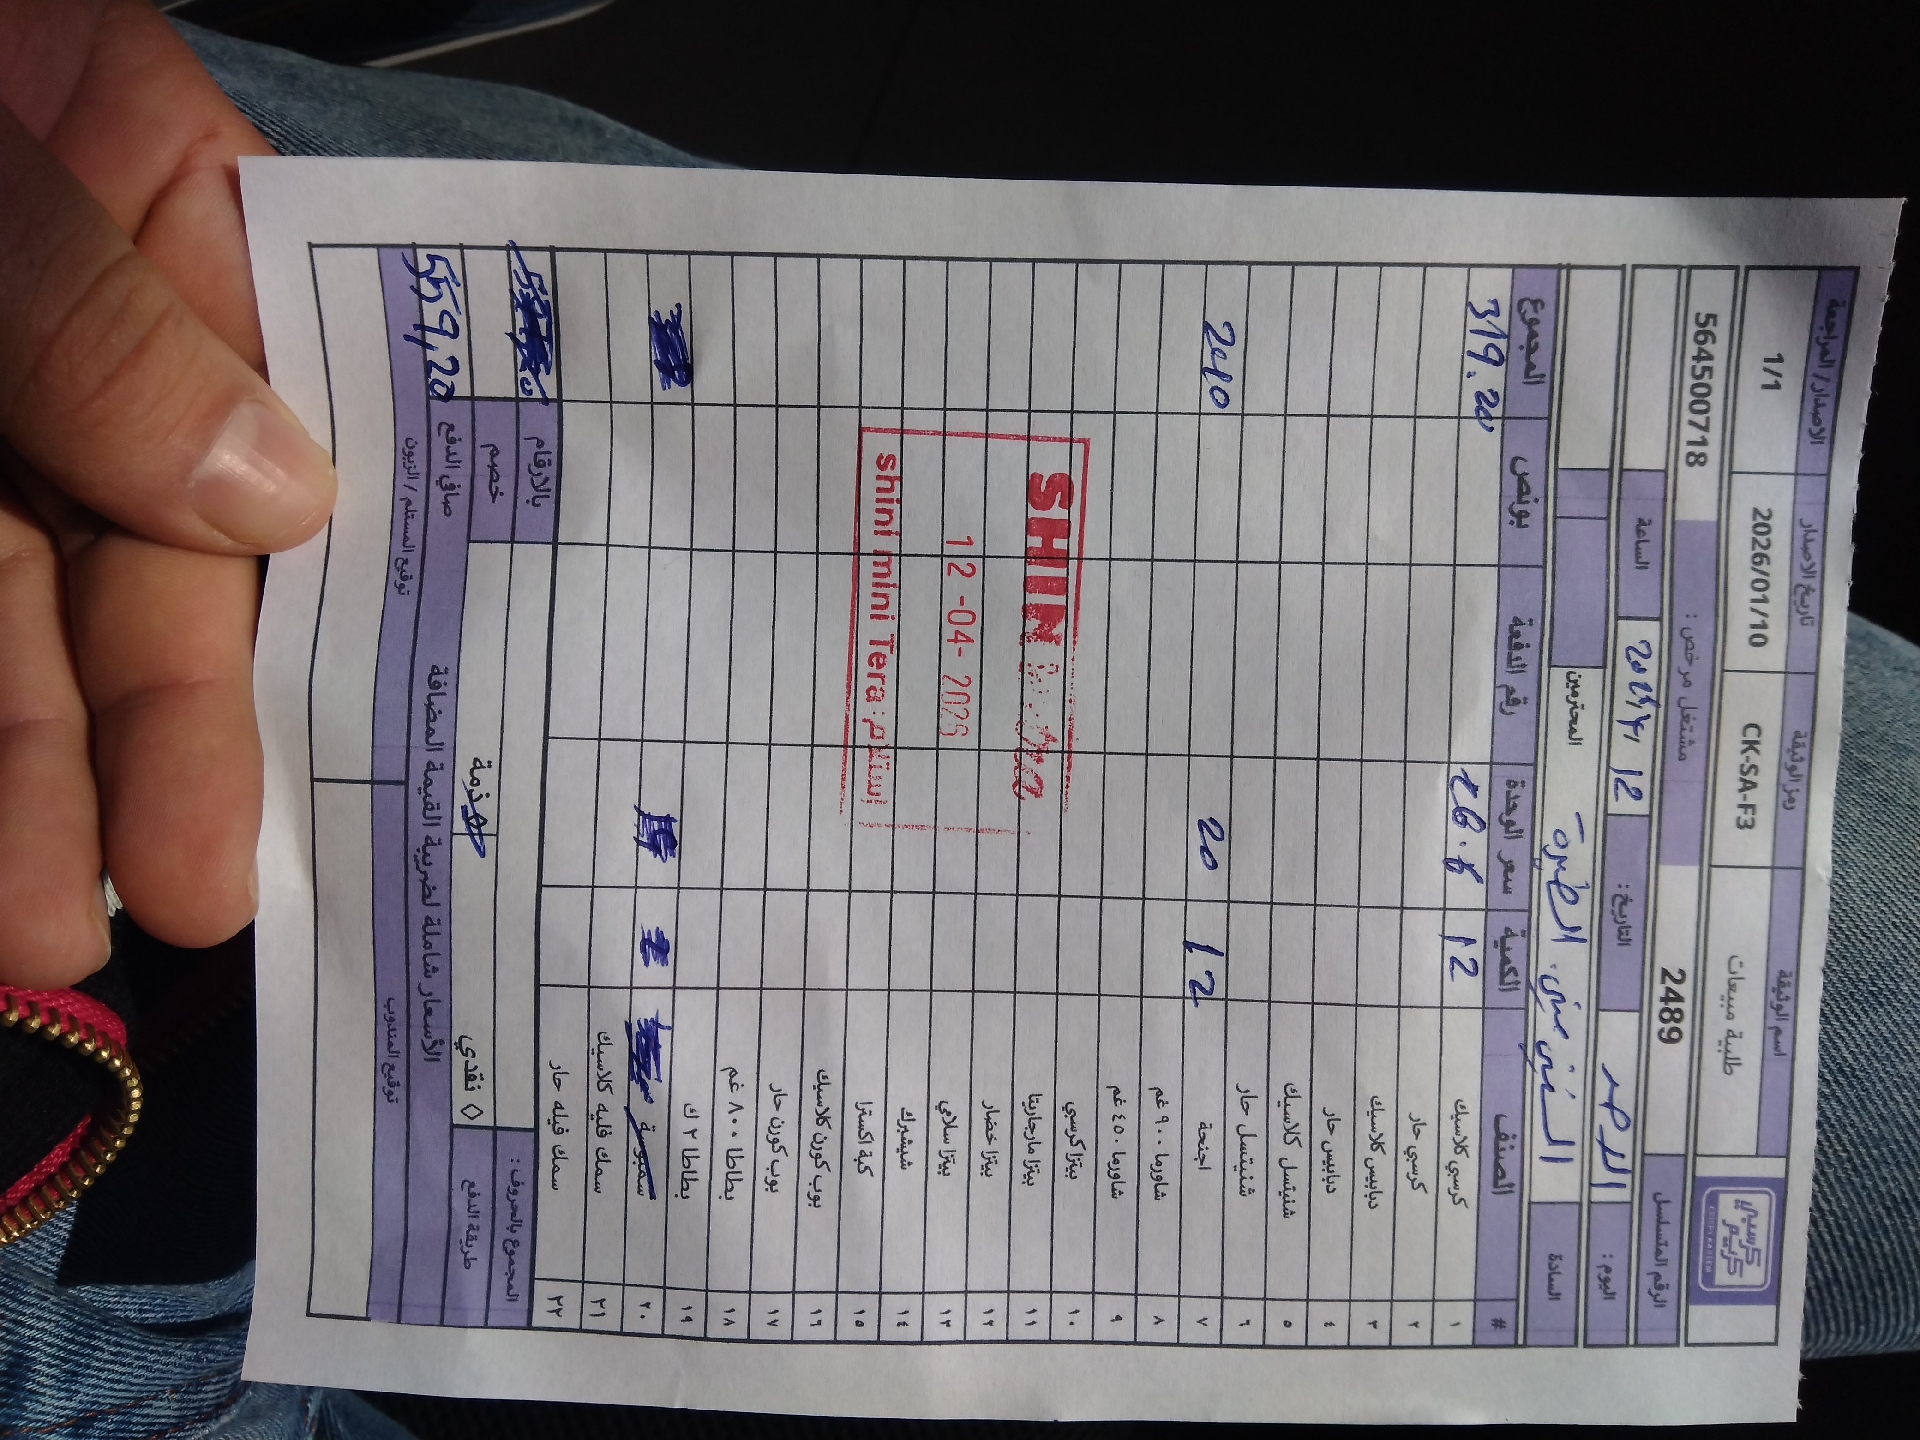 كرسبي كريم
اسم الوثيقة رمز الوثيقة تاريخ الاصدار الاصدار/المراجعة
طلبية مبيعات CK-SA-F3 2026/01/10 1/1
الرقم المتسلسل 2489 مشتغل مرخص: 564500718
اليوم: الاحد التاريخ: 12 الساعة
السادة الشني ميني. الطيرة المحترمين
# الصنف الكمية سعر الوحدة رقم الدفعة بونص المجموع
١ كرسبي كلاسيك 12 26.6 319.20
٢ كرسبي حار
٣ دبابيس كلاسيك
٤ دبابيس حار
٥ شنيتسل كلاسيك
٦ شنيتسل حار
٧ اجنحة 12 20 240
٨ شاورما ٩٠٠غم
٩ شاورما ٤٥٠غم
١٠ بيتزا كرسبي
١١ بيتزا مارجاريتا
١٢ بيتزا خضار
١٣ بيتزا سلامي
١٤ شيشبرك
١٥ كبة اكسترا
١٦ بوب كورن كلاسيك
١٧ بوب كورن حار
١٨ بطاطا ٨٠٠غم
١٩ بطاطا ٢ك
٢٠ سمبوسة
٢١ سمك فليه كلاسيك
٢٢ سمك فيله حار
SHINI
12-04-2026
shini mini Tera: إستلام
المجموع بالحروف: بالارقام
طريقة الدفع ◊ نقدي ◊ ذمة خصم
صافي الدفع 559,20
الأسعار شاملة لضريبة القيمة المضافة
توقيع المندوب توقيع المستلم / الزبون